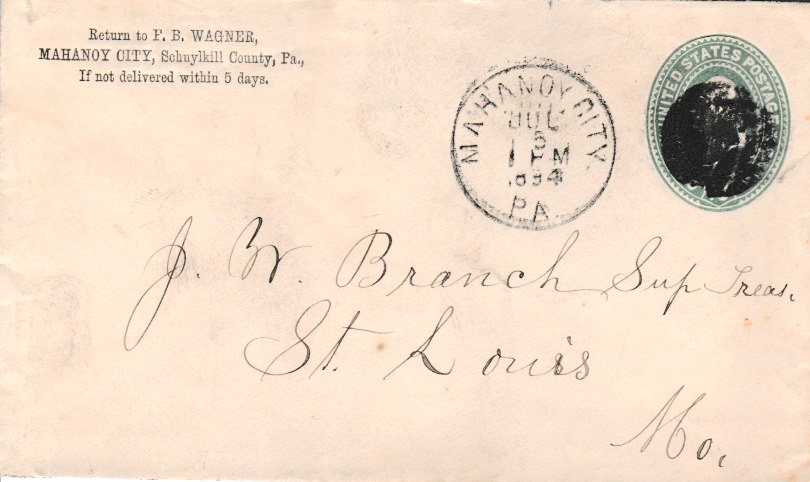 Return to F. B. WAGNER,
MAHANOY CITY, Schuylkill County, Pa.,
If not delivered within 5 days.
UNITED STATES POSTAGE
MAHANOY CITY.
JUL
5
1 PM
1894
PA
J. W. Branch Sup Treas.
St. Louis
Mo.